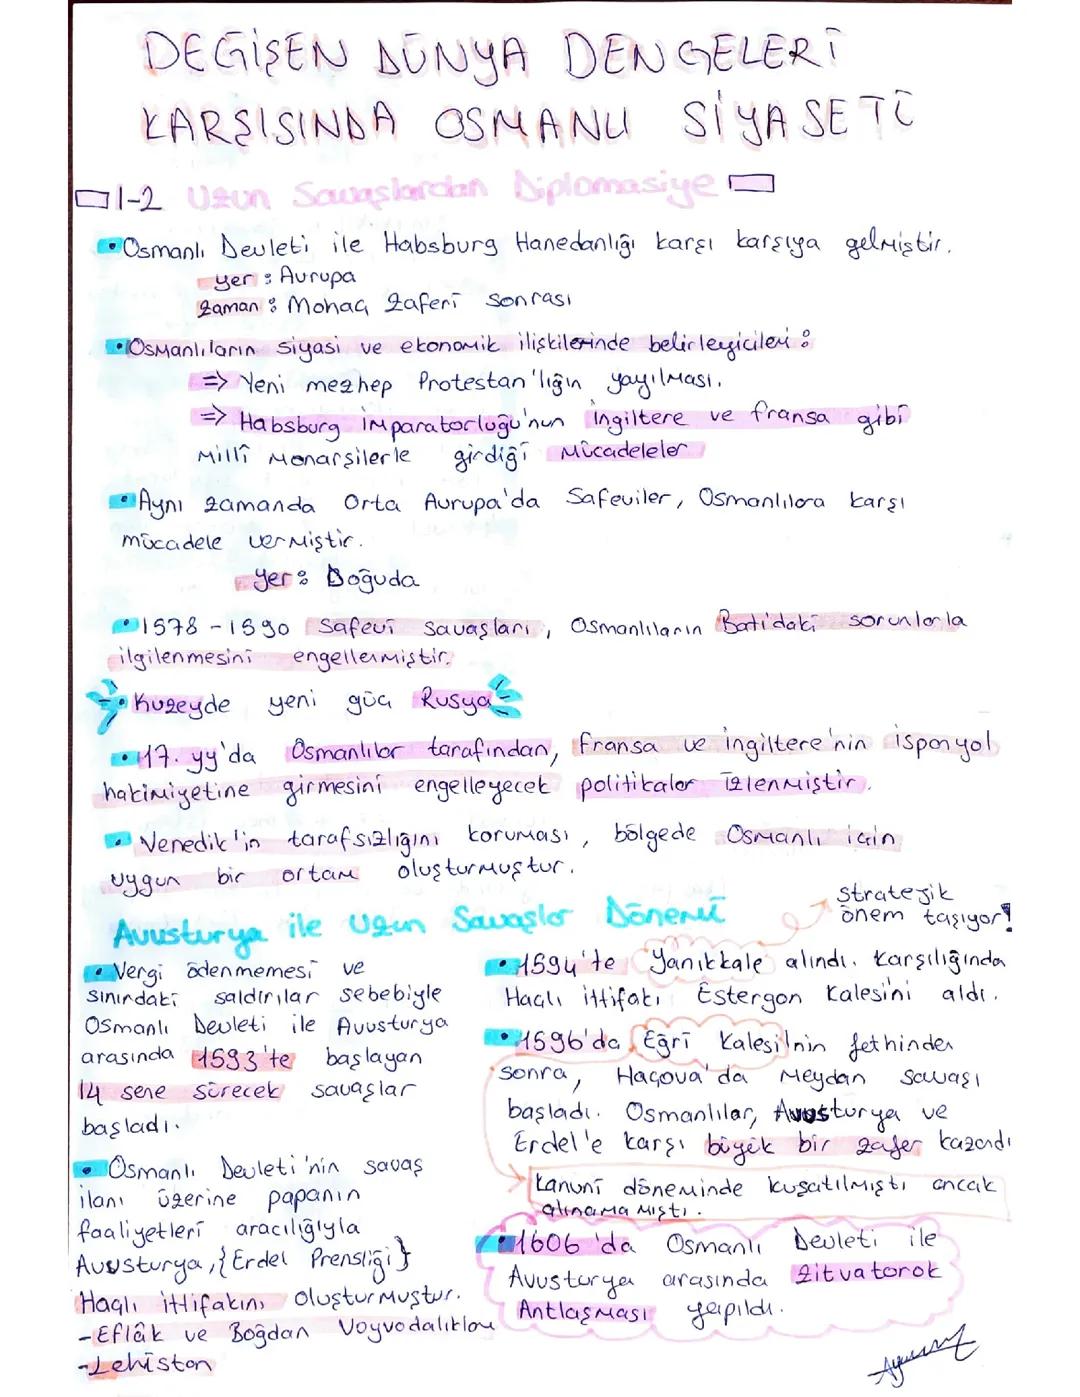 DEĞİŞEN DÜNYA DENGELERİ
KARŞISINDA OSMANLI SİYASETİ
1-2 Uzun Savaşlardan Diplomasiye
• Osmanlı Devleti ile Habsburg Hanedanlığı karşı karşıya gelmiştir.
yer : Avrupa
zaman : Mohaç Zaferi sonrası
• Osmanlıların siyasi ve ekonomik ilişkilerinde belirleyicileri :
=> Yeni mezhep Protestan'lığın yayılması.
=> Habsburg imparatorluğu'nun İngiltere ve fransa gibi
Millî Monarşilerle girdiği Mücadeleler
• Aynı zamanda Orta Avrupa'da Safeviler, Osmanlılara karşı
mücadele vermiştir.
yer : Doğuda
• 1578 - 1590 Safevi savaşları, Osmanlıların Batı'daki sorunlarla
ilgilenmesini engellemiştir.
• Kuzeyde yeni güç Rusya
• 17. yy'da Osmanlılar tarafından, fransa ve İngiltere'nin İspanyol
hakimiyetine girmesini engelleyecek politikalar izlenmiştir.
• Venedik'in tarafsızlığını koruması, bölgede Osmanlı için
uygun bir ortam oluşturmuştur.
Avusturya ile Uzun Savaşlar Dönemi
• Vergi ödenmemesi ve
sınırdaki saldırılar sebebiyle
Osmanlı Devleti ile Avusturya
arasında 1593'te başlayan
14 sene sürecek savaşlar
başladı.
• Osmanlı Devleti'nin savaş
ilanı üzerine papanın
faaliyetleri aracılığıyla
Avusturya, {Erdel Prensliği}
Haçlı ittifakını oluşturmuştur.
- Eflâk ve Boğdan Voyvodalıkları
- Lehistan
stratejik
önem taşıyor!
• 1594'te Yanıkkale alındı. Karşılığında
Haçlı ittifakı Estergon Kalesini aldı.
• 1596'da Eğri Kalesi'nin fethinden
sonra, Haçova'da Meydan savaşı
başladı. Osmanlılar, Avusturya ve
Erdel'e karşı büyük bir zafer kazandı
Kanuni döneminde kuşatılmıştı ancak
alınamamıştı.
• 1606'da Osmanlı Devleti ile
Avusturya arasında Zitvatorok
Antlaşması yapıldı.